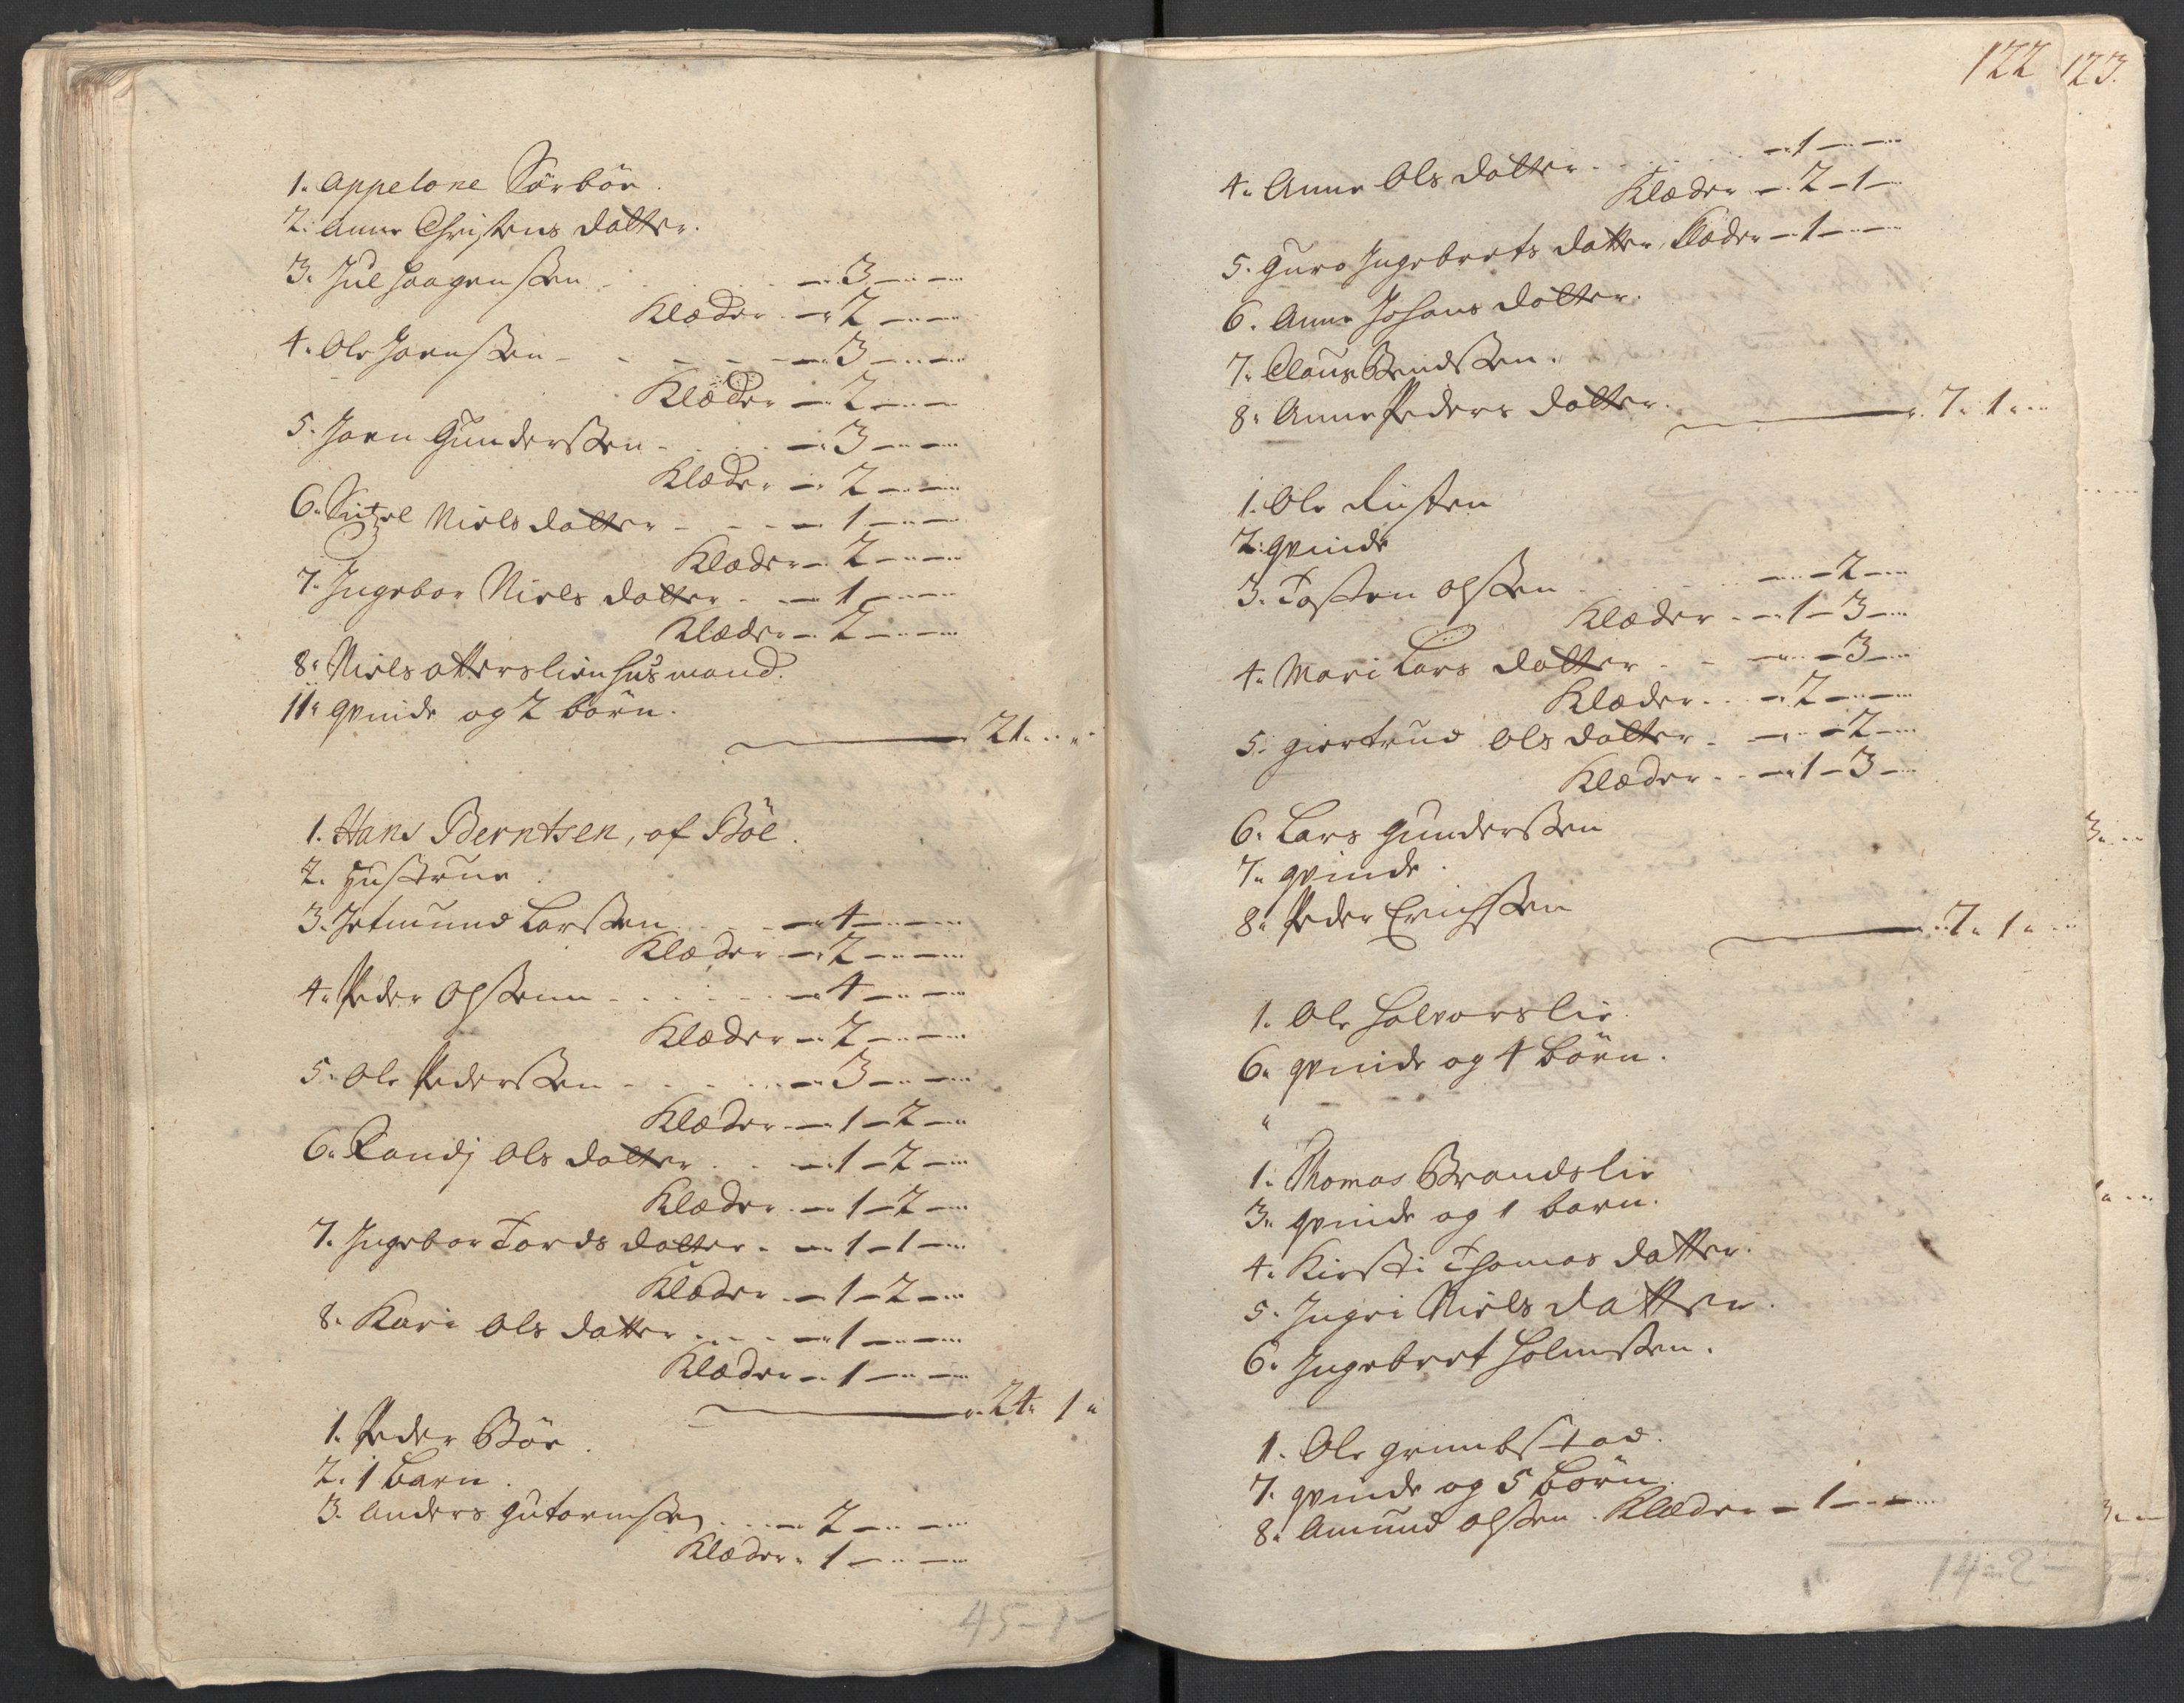 1. Appelone Sørbøe.
2. Anne Christens datter.
3. Jul Haagenssen . . . 3
Klæder 2
4. Ole Joenssen 3
Klæder 2
5. Joen Gunderssen 3
Klæder 2
6. Sitzel Niels datter 1
Klæder 2
7. Ingebor Niels datter 1
Klæder 2
8. Niels Atterslien husmand.
11. qvinde og 2 börn.
21.
1. Hans Berntsen, af Böe.
2. Hustrue.
3. Jetmund Larssen 4
Klæder 2
4. Peder Olssenn 4
Klæder 2
5. Ole Pederssen 3
Klæder 1-2
6. Randj Ols datter 1-2
Klæder 1-2
7. Ingebor Tords datter 1-1
Klæder 1-2
8. Kari Ols datter 1
Klæder 1
24. 1.
1. Peder Böe.
2. 1 barn.
3. Anders Gutormssen 2
Klæder 1
45-1-
122 123.
4. Anne Ols datter 1
Klæder 2-1
5. Guro Ingebrets datter, Klæder 1
6. Anne Johans datter.
7. Claus Bendssen.
8. Anne Peders datter.
7. 1.
1. Ole Rusten
2. qvinde
3. Tosten Olssen 2
Klæder 1-3
4. Mari Lars datter 3
Klæder 2
5. giertrud Ols datter 2
Klæder 1-3
6. Lars Gunderssen
7. qvinde.
8. Peder Erichssen
7. 1.
1. Ole Halvorslie.
6. qvinde og 4 börn.
1. Thomas Brandslie
3. qvinde og 1 barn.
4. Kirsti Thomas datter.
5. Ingri Niels datter.
6. Ingebret Holmssen.
1. Ole grimbstad.
7. qvinde og 5 börn.
8. Amund Olssen. Klæder 1
14-2-